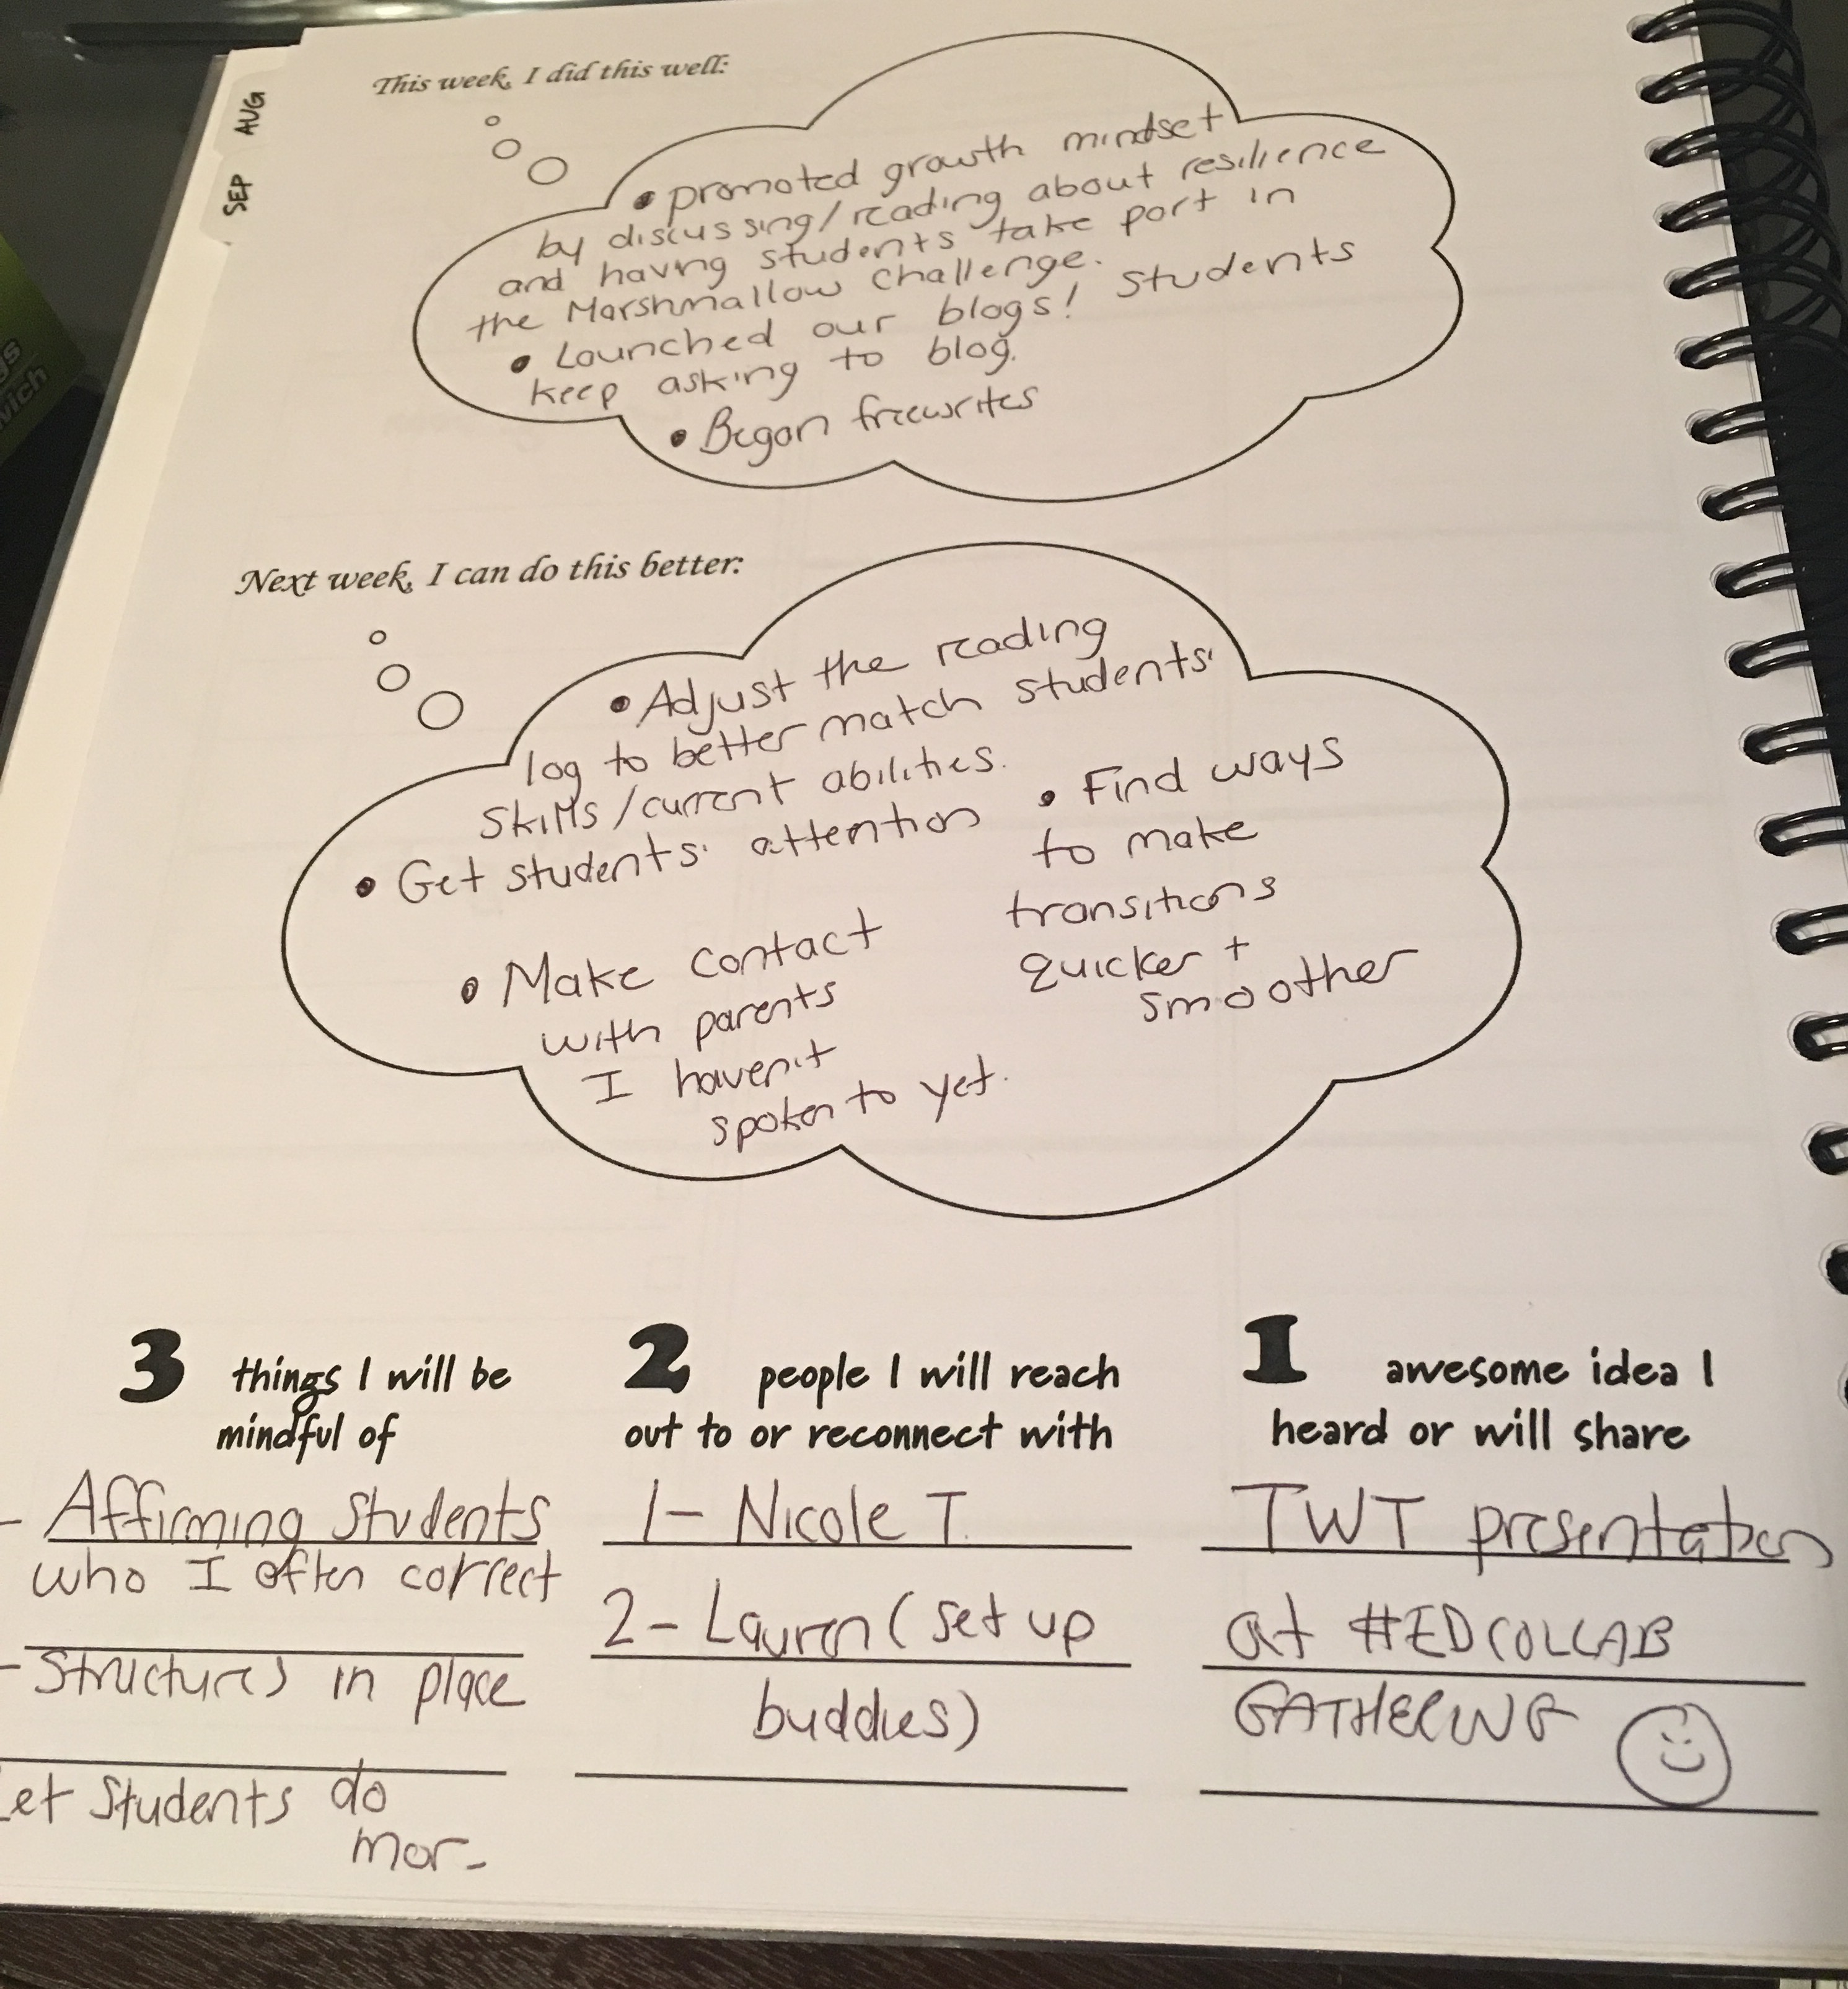 This week, I did this well:
AUG
SEP
• promoted growth mindset
by discussing/reading about resilience
and having students take part in
the Marshmallow Challenge.
• Launched our blogs! Students
keep asking to blog.
• Began freewrites
Next week, I can do this better:
• Adjust the reading
log to better match students'
skills/current abilities.
• Get students' attention
• Make contact
with parents
I haven't
spoken to yet.
• Find ways
to make
transitions
quicker +
smoother
3 things I will be
mindful of
- Affirming Students
who I often correct
- Structures in place
Let Students do
more
2 people I will reach
out to or reconnect with
1- Nicole T.
2- Lauren (set up
buddies)
1 awesome idea I
heard or will share
TWT presentation
at #EDCOLLAB
GATHERING